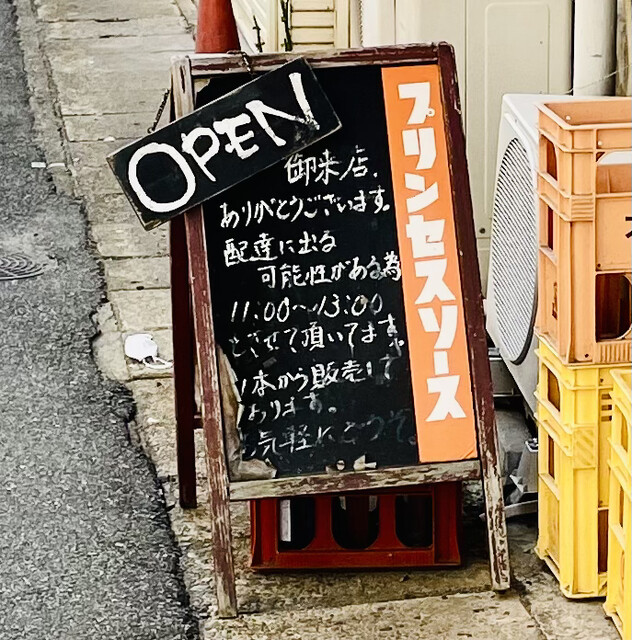 OPEN
プリンセスソース
御来店、
ありがとうございます。
配達に出る
可能性がある為
11:00〜13:00
とさせて頂いてます
1本から販売して
おります。
気軽にどうぞ。